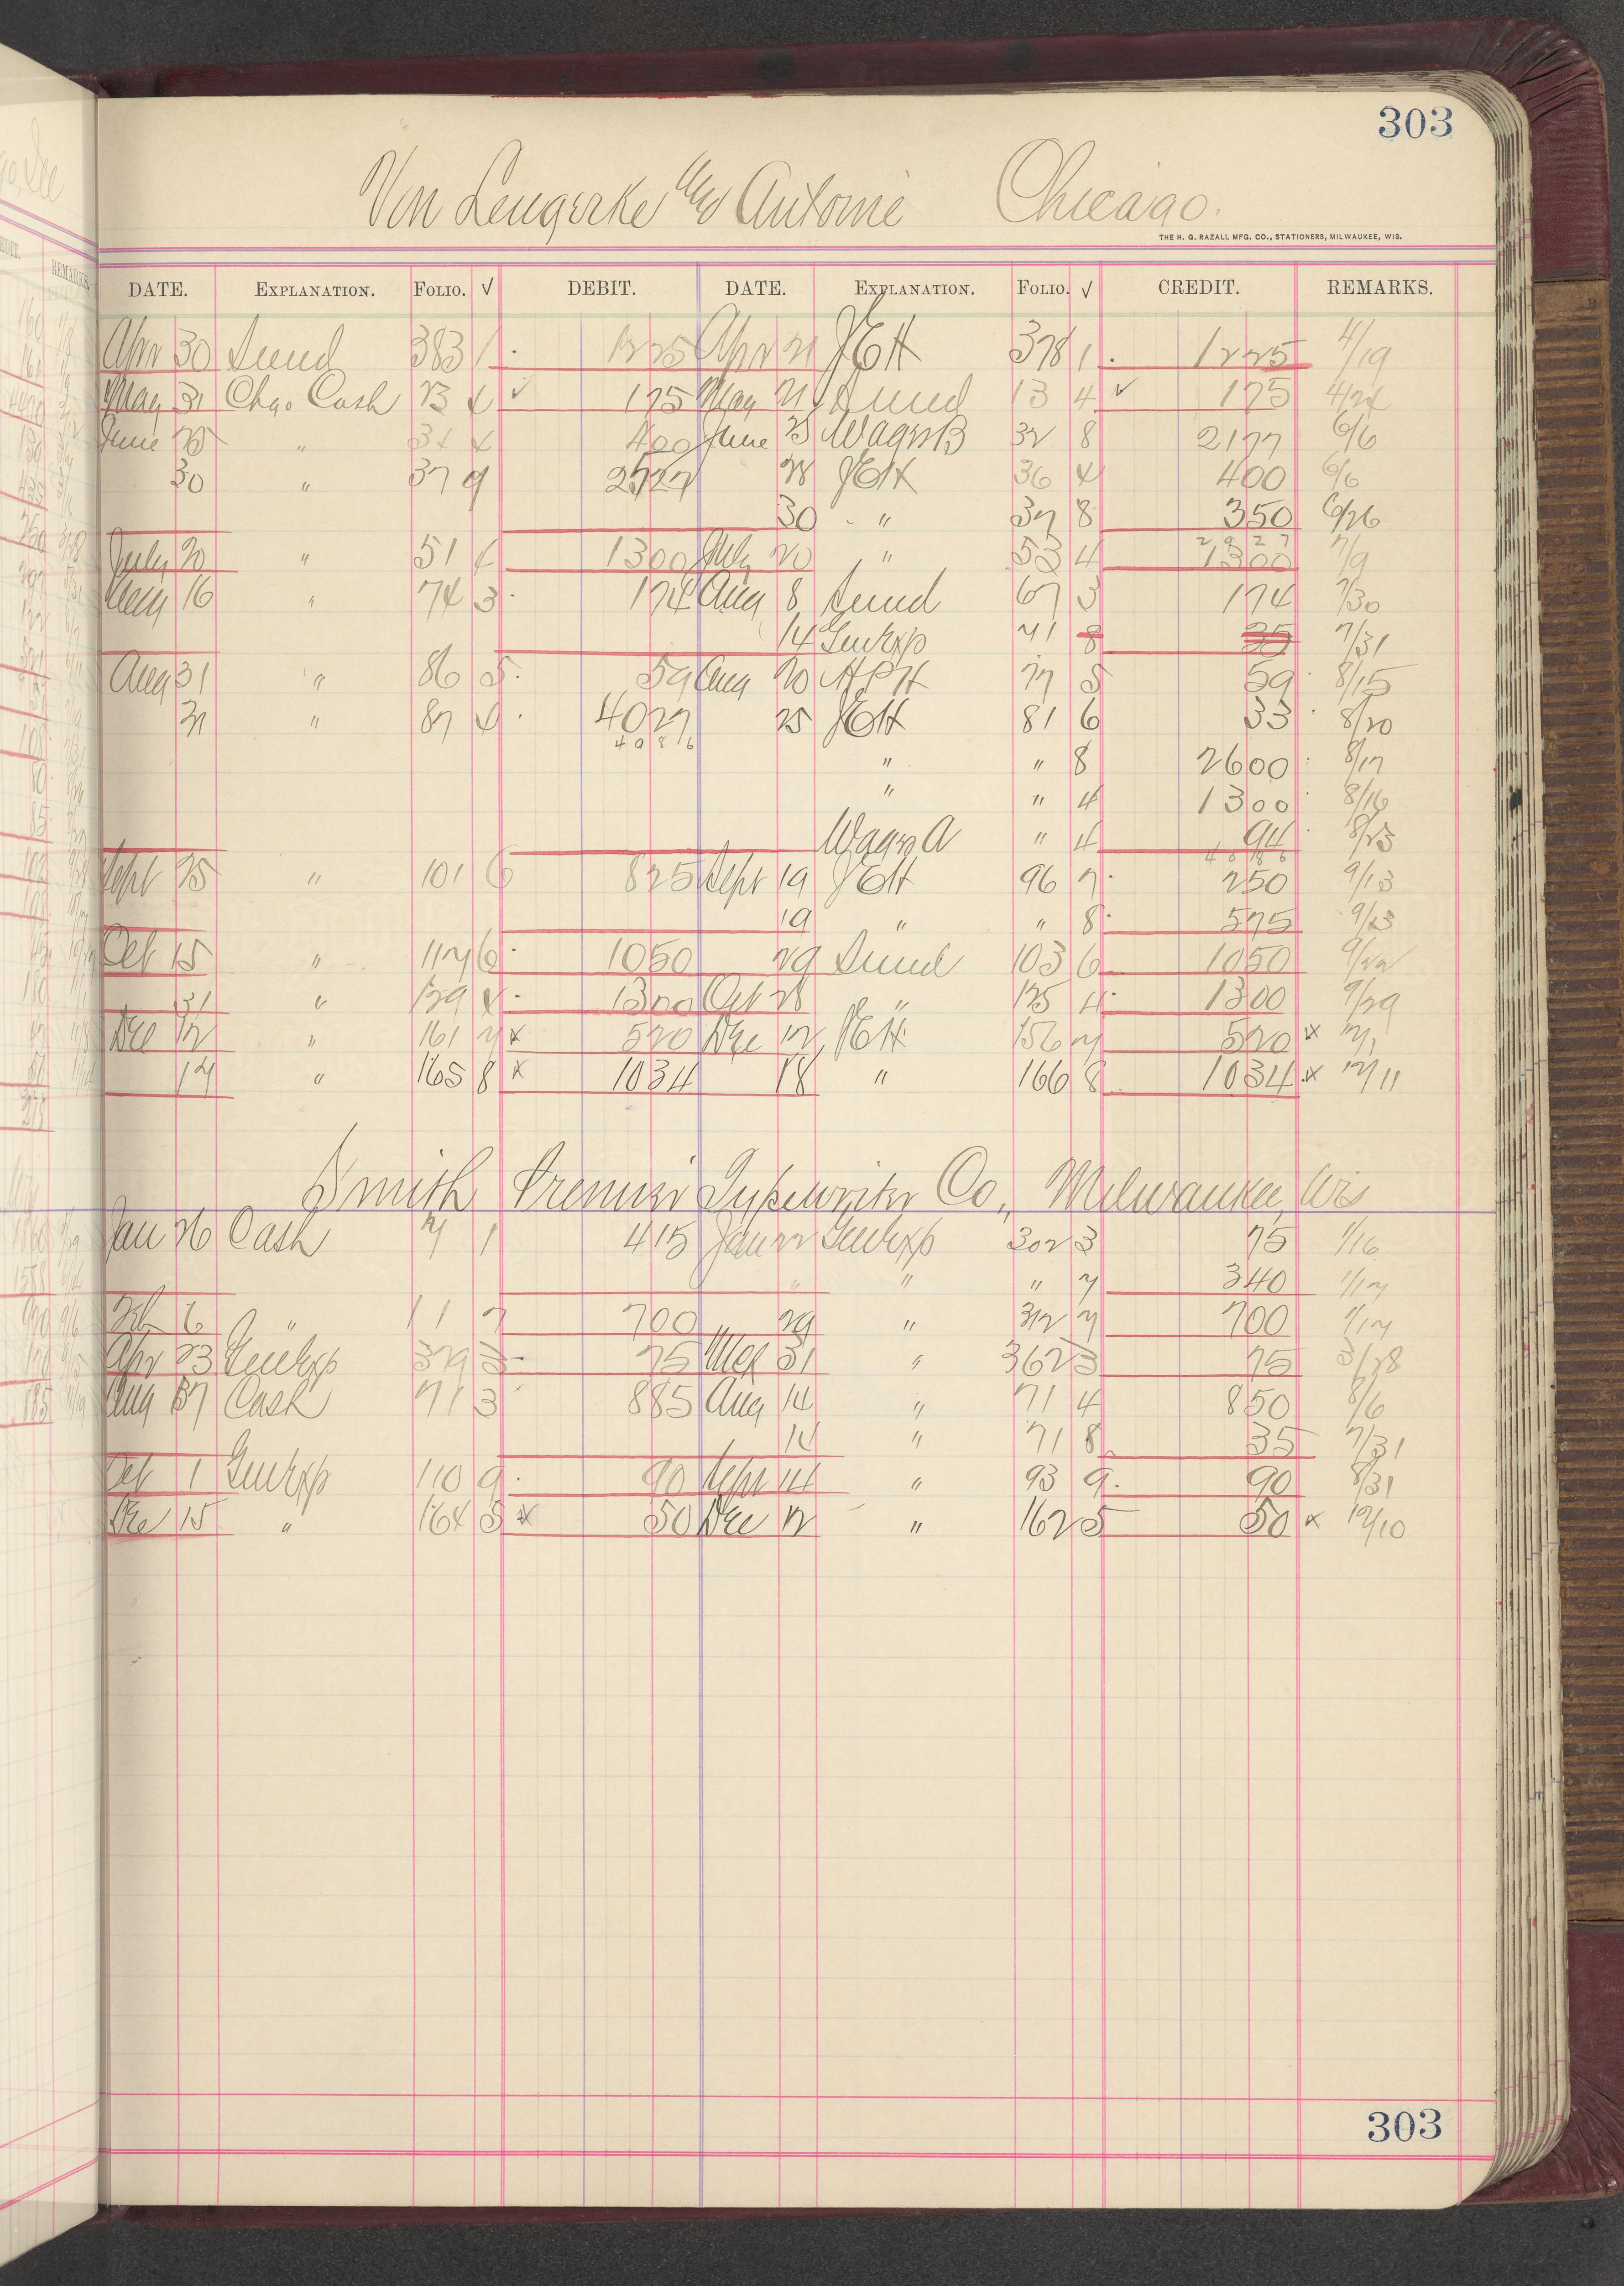 303
Von Lengerke and Antoine Chicago.
THE H. G. RAZALL MFG. CO., STATIONERS, MILWAUKEE, WIS.
DATE. EXPLANATION. FOLIO. √ DEBIT. DATE. EXPLANATION. FOLIO. √ CREDIT. REMARKS.
Apr 30 Sund 383 1 1225 Apr 21 JEH 378 1 1225 4/19
May 31 Chgo Cash 23 4 ✓ 175 May 21 Sund 13 4 ✓ 175 4/24
June 25 " 34 4 400 June 25 Wagner B 32 8 2177 6/6
30 " 37 9 2527 28 JEH 36 4 400 6/6
30 " 37 8 350 6/26
2927
July 20 " 51 4 1300 July 20 " 53 4 1300 7/9
Aug 16 " 74 3 174 Aug 8 Sund 67 3 174 7/30
14 GenExp 71 8 35 7/31
Aug 31 " 86 5 59 Aug 20 HPH 77 5 59 8/15
31 " 87 4 4027 25 JEH 81 6 33 8/20
4986
" " 8 2600 8/17
" " 4 1300 8/16
Wagn A " 4 94 8/23
Sept 25 " 101 6 825 Sept 19 JEH 96 7 250 9/13
19 " " 8 575 9/23
Oct 15 " 117 6 1050 29 Sund 103 6 1050 9/22
31 " 129 4 1300 Oct 28 " 125 4 1300 9/29
Dec 12 " 161 7 x 520 Dec 12 JEH 156 7 520 x 12/1
17 " 165 8 x 1034 18 " 166 8 1034 x 12/11
Smith Premier Typewriter Co., Milwaukee, Wis
Jan 26 Cash 7 1 415 Jan 22 GenExp 302 3 75 1/16
" " " 7 340 1/17
Feb 6 " 11 7 700 29 " 312 7 700 1/17
Apr 23 GenExp 379 3 75 Mch 31 " 362 3 75 3/28
Aug Cash 71 3 885 Aug 14 " 71 4 850 8/6
14 " 71 8 35 7/31
Oct 1 GenExp 110 9 90 Sept 14 " 93 9 90 8/31
Dec 15 " 164 5 x 50 Dec 12 " 162 5 50 x 12/10
303